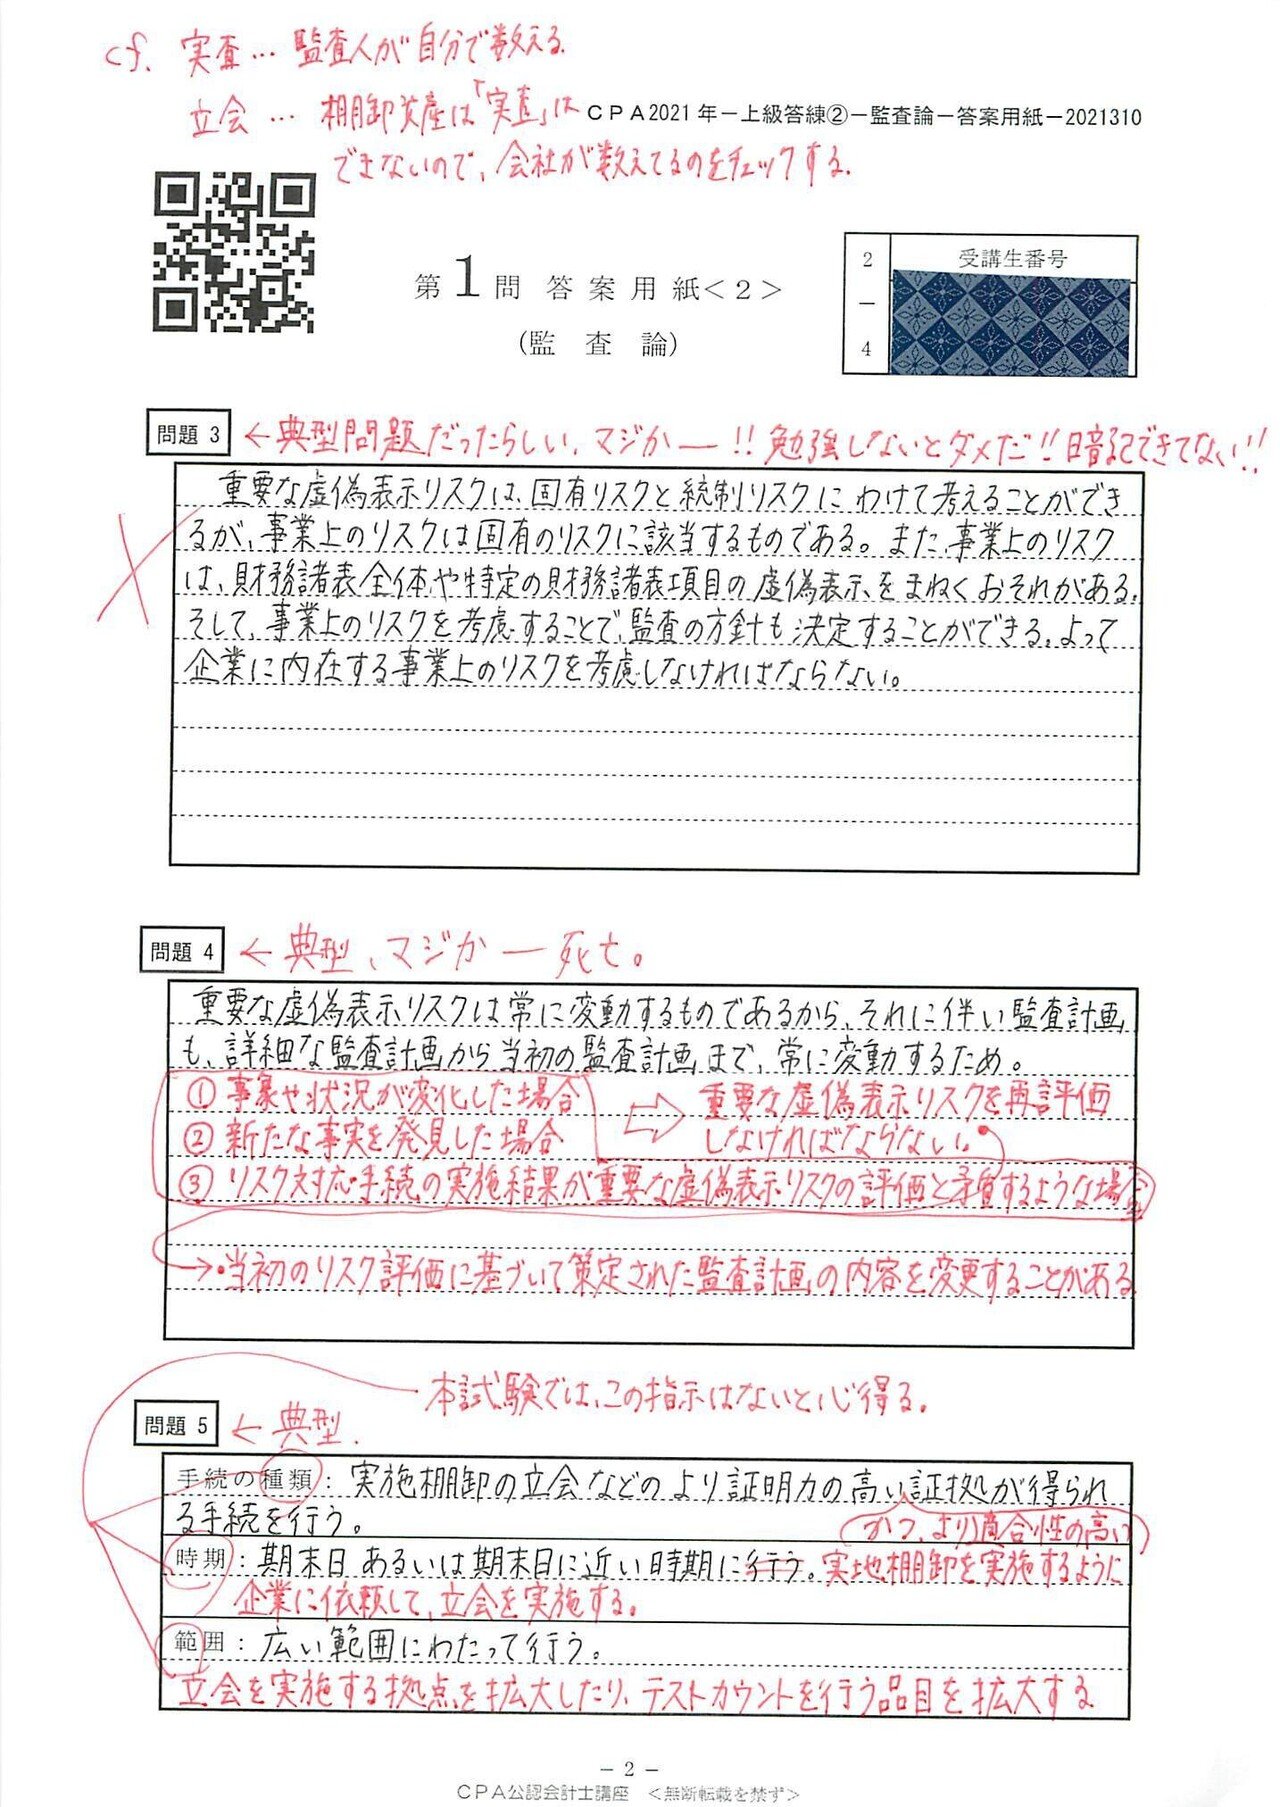 cf. 実査… 監査人が自分で数える.
立会… 棚卸資産は「実査」は
CPA2021年－上級答練②－監査論－答案用紙－2021310
できないので、会社が数えてるのをチェックする.
第1問 答案用紙＜2＞
(監 査 論)
2－4
受講生番号
問題 3
← 典型問題だったらしい、マジかー!! 勉強しないとダメだ!! 暗記できてない!!
重要な虚偽表示リスクは、固有リスクと統制リスクにわけて考えることができ
るが、事業上のリスクは固有のリスクに該当するものである。また、事業上のリスク
は、財務諸表全体や特定の財務諸表項目の虚偽表示をまねくおそれがある。
そして、事業上のリスクを考慮することで、監査の方針も決定することができる。よって
企業に内在する事業上のリスクを考慮しなければならない。
問題 4
← 典型、マジかー 死亡。
重要な虚偽表示リスクは常に変動するものであるから、それに伴い監査計画
も、詳細な監査計画から当初の監査計画まで、常に変動するため。
① 事象や状況が変化した場合
② 新たな事実を発見した場合
⇨ 重要な虚偽表示リスクを再評価
しなければならない。
③ リスク対応手続の実施結果が重要な虚偽表示リスクの評価と矛盾するような場合
→・当初のリスク評価に基づいて策定された監査計画の内容を変更することがある
本試験では、この指示はないと心得る。
問題 5
← 典型.
手続の種類：実施棚卸の立会などのより証明力の高い証拠が得られ
る手続を行う。
かつ、より適合性の高い
時期：期末日あるいは期末日に近い時期に行う。実地棚卸を実施するように
企業に依頼して、立会を実施する。
範囲：広い範囲にわたって行う。
立会を実施する拠点を拡大したり、テストカウントを行う品目を拡大する
－ 2 －
CPA公認会計士講座 ＜無断転載を禁ず＞